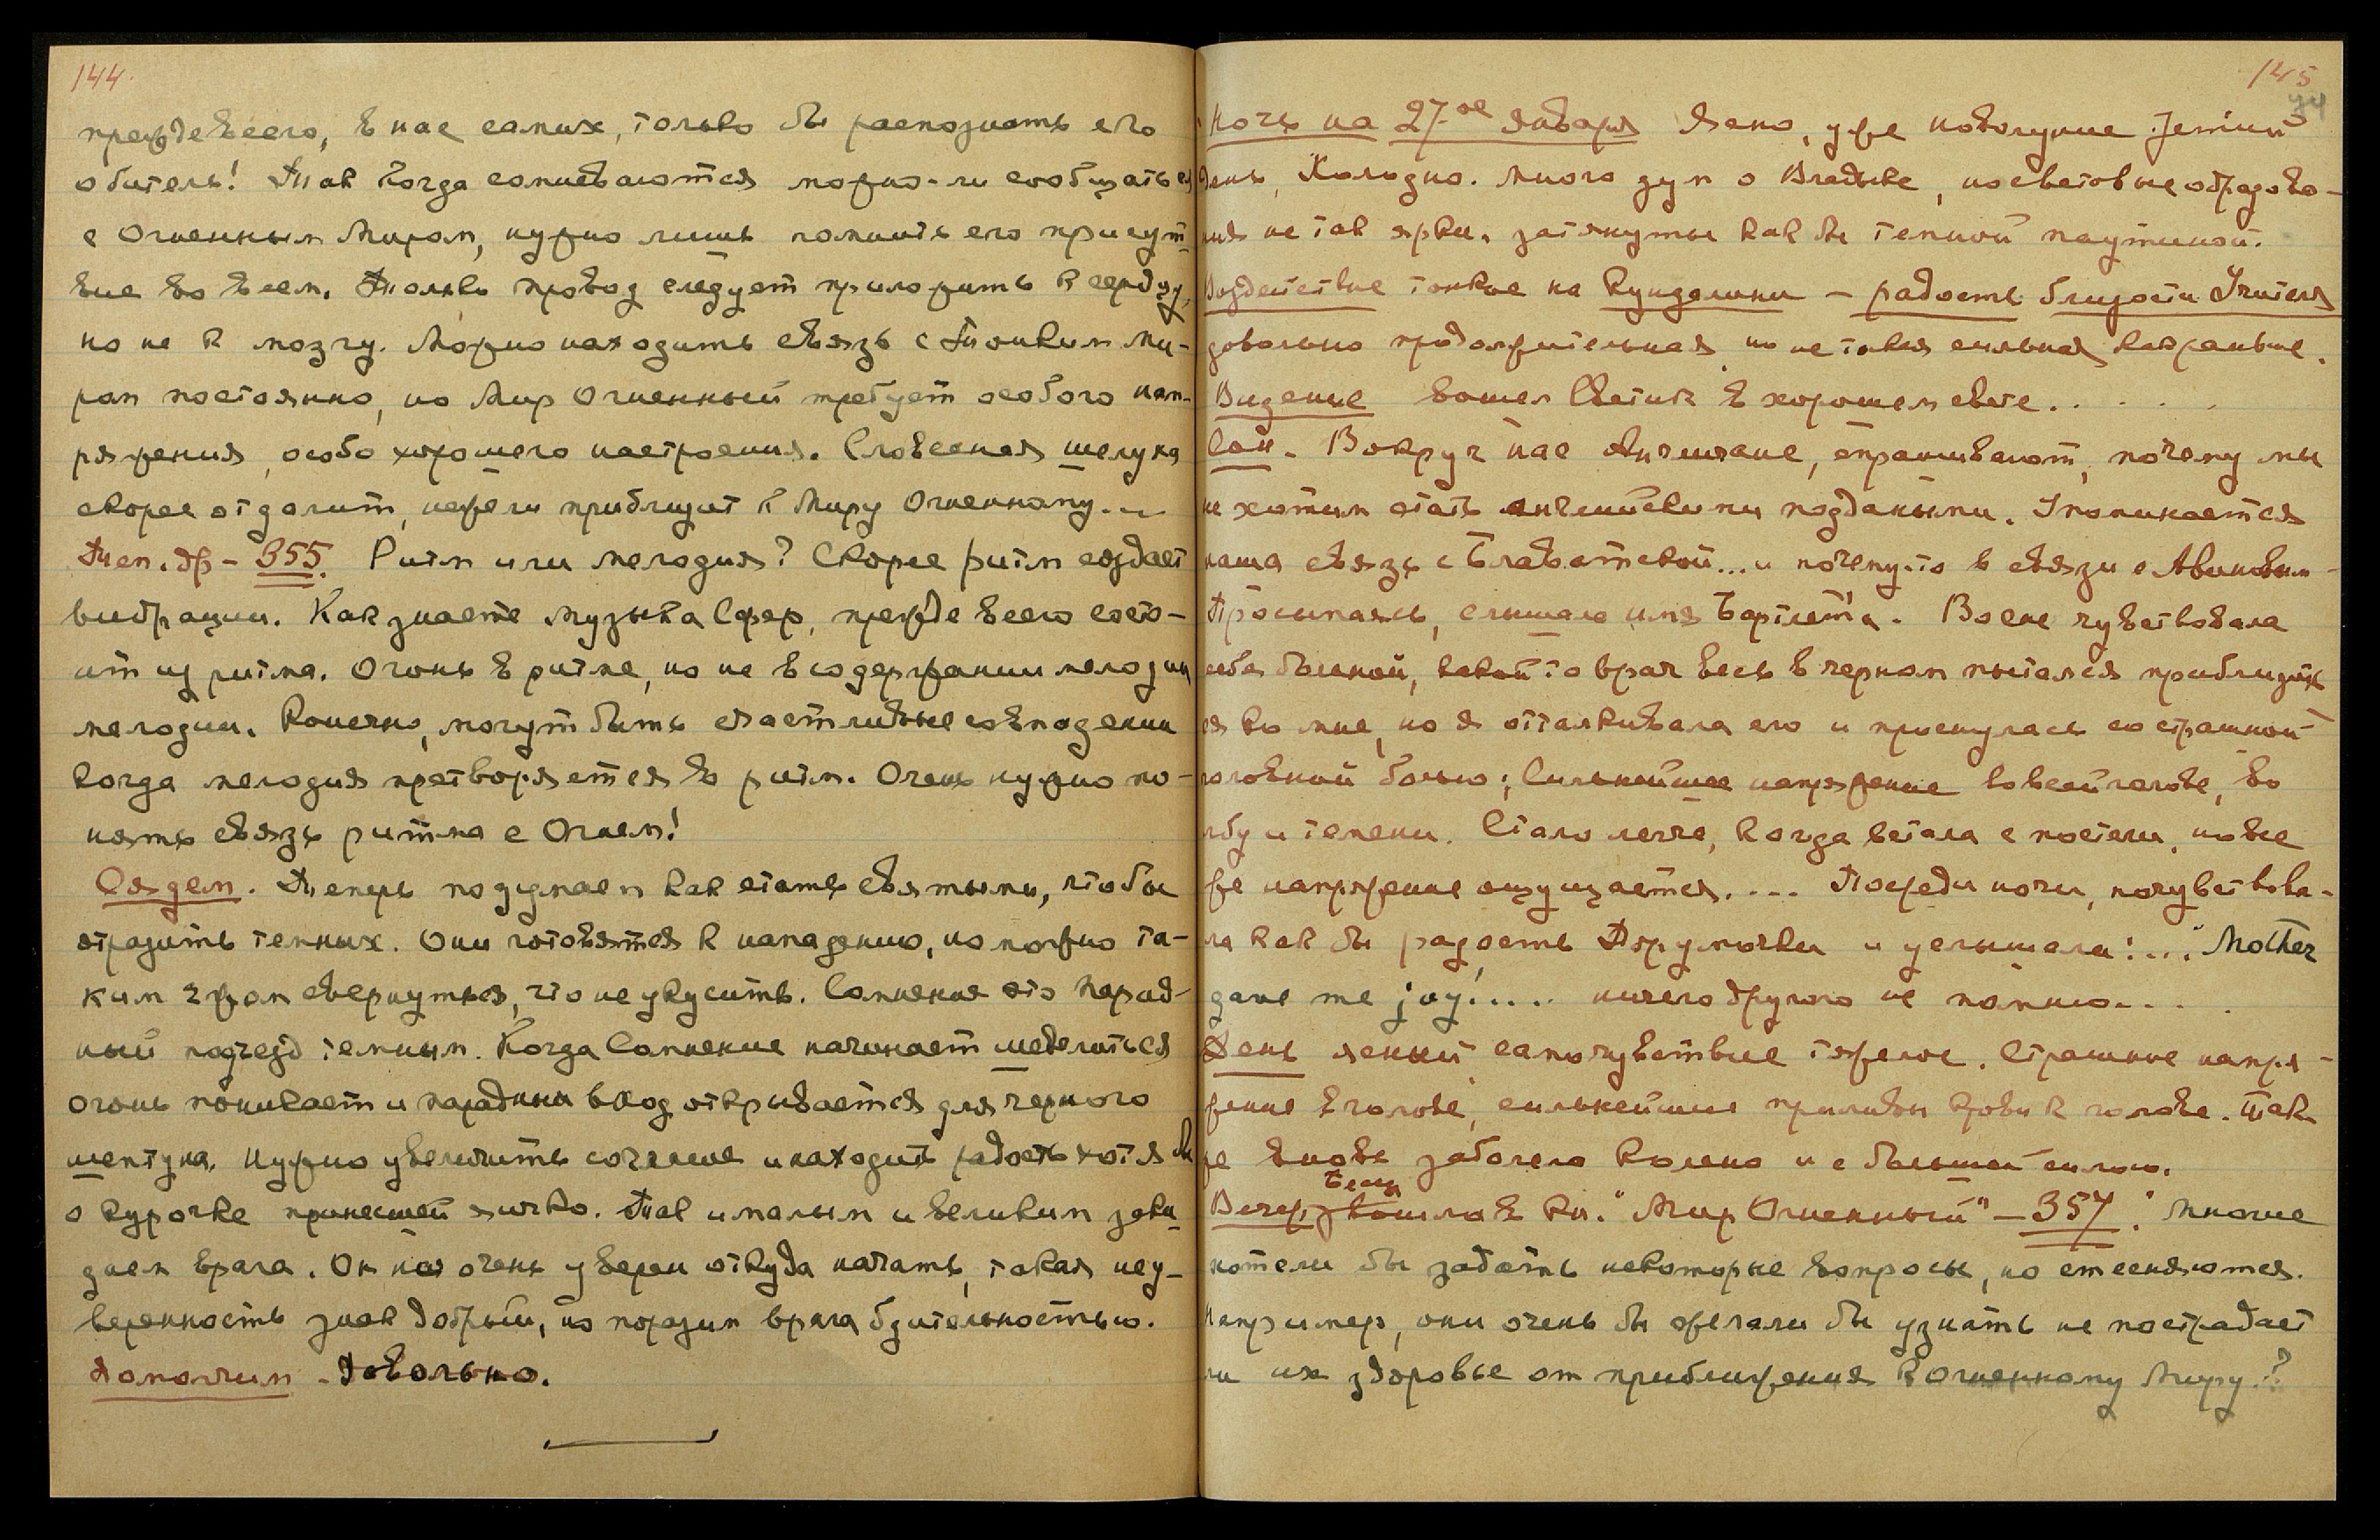 144.
прежде всего, в нас самих, только бы распознать его
обитель! Так когда сомневаются можно-ли сообщаться
с Огненным Миром, нужно лишь помнить его присут-
вие во всем. Только провод следует приложить к сердцу,
но не к мозгу. Можно находить связь с Тонким Ми-
ром постоянно, но Мир Огненный требует особого нап-
ряжения, особо хорошего настроения. Словесная шелуха
скорее отдалит, нежели приблизит к Миру Огненному...
Тет. др - 355. Ритм или мелодия? Скорее ритм создает
вибрации. Как знаете музыка Сфер, прежде всего состо-
ит из ритма. Огонь в ритме, но не в содержании мелодии
мелодии. Конечно, могут быть счастливые совпадении
когда мелодия претворяется в ритм. Очень нужно по-
нять связь ритма с Огнем!
Сядем. Теперь подумаем как стать святыми, чтобы
отразить темных. Они готовятся к нападению, но можно та-
ким ежом свернуться, что не укусить. Сомнение это парад-
ный подъезд темным. Когда Сомнение начинает шевелиться
огонь поникает и парадный вход открывается для черного
шептуна. Нужно увеличить согласие и находить радость хотя бы
о курочке принесшей яичко. Так и малым и великим заки
даем врага. Он не очень уверен откуда начать, такая неу-
веренность знак добрый, но поразим врага бдительностью.
Помолчим - Довольно.
145
Ночь на 27-ое Января Ясно, уже новолуние Jemini
день, Холодно. Много дум о Владыке, но световые образова-
ния не так ярки, затянуты как бы темной паутиной.
Воздействие тонкое на Кундалини - радость близости Учителя
довольно продолжительная но не такая сильная как раньше.
Видение Вошел Светик в хорошем свете.....
Сон. Вокруг нас Англичане, спрашивают, почему мы
не хотим стать английскими подданными. Упоминается
наша связь с Блаватской... и почему-то в связи с Авиновым -
Просыпаясь, слышала имя Бартлет'а. Во сне чувствовала
себя больной, какой то врач весь в черном пытался приблизить
ся ко мне, но я отталкивала его и проснулась со страшной
головной болью; Сильнейшее напряжение во всей голове, во
лбу и темени. Стало легче, когда встала с постели, но все
же напряжение ощущается.... Посреди ночи, почувствова-
ла как бы радость Порумочки и услышала:... "Mother
gave me joy!.... ничего другого не помню....
День ясный самочувствие тяжелое. Страшное напря-
жение в голове, сильнейшие приливы крови к голове. Так
же вновь заболело колено и с большей силою.
Беседа
Вечер. вошла в кн. "Мир Огненный" - 357." Многие
хотели бы задать некоторые вопросы, но стесняются.
Например, они очень бы желали бы узнать не пострадает
ли их здоровье от приближения к Огненному Миру?